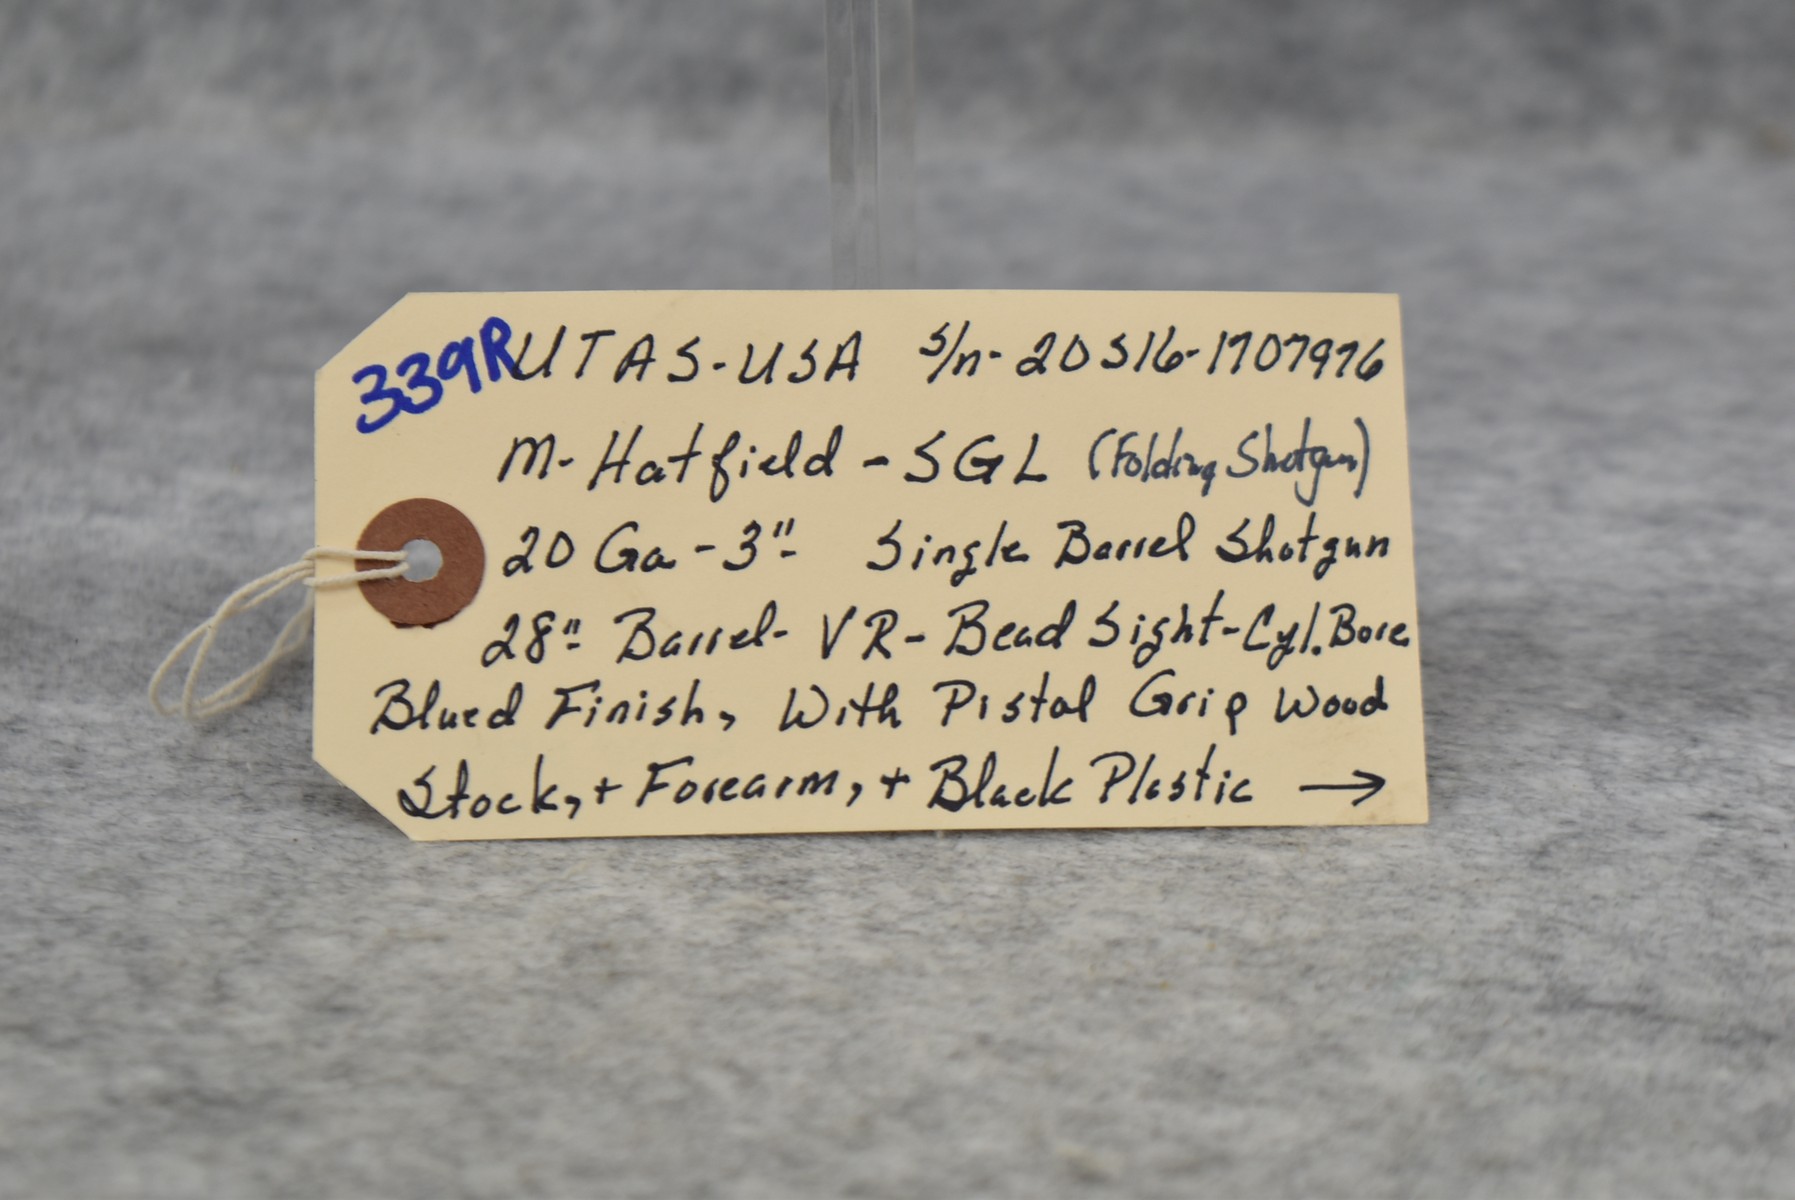 339R UTAS-USA S/n-20S16-1707976
M-Hatfield-SGL (Folding Shotgun)
20 Ga-3"- Single Barrel Shotgun
28"- Barrel- VR-Bead Sight-Cyl. Bore
Blued Finish, With Pistol Grip Wood
Stock, + Forearm, + Black Plastic →